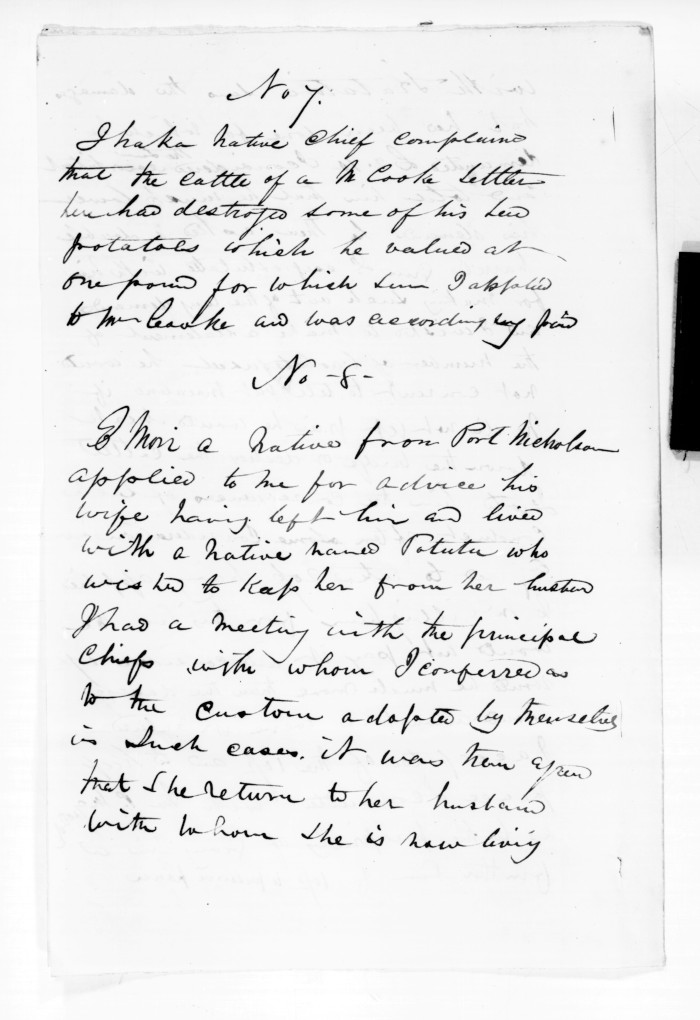 No 7.
Ihaka native chief complains
that the cattle of a Mr Cooke settler
here had destroyed some of his seed
potatoes which he valued at
one pound for which sum I applied
to Mr Cooke and was accordingly paid
No -8-
E Mori a native from Port Nicholson
applied to me for advice his
wife having left him and lived
with a native named Potutu who
wished to keep her from her husband
I had a meeting with the principal
chiefs with whom I conferred as
to the custom adopted by themselves
in such cases. it was then agreed
that she return to her husband
with whom she is now living